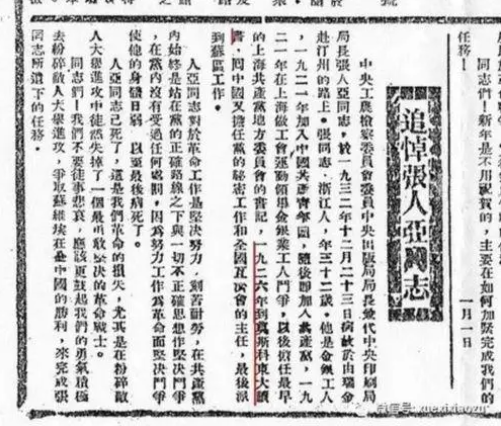 同志們！新年是不用祝賀的，主要在如何加緊完成我們的
任務！
一月一日
追悼張人亞同志
中央工農檢察委員會委員中央出版局局長兼代中央印刷局
局長張人亞同志，於一九三二年十二月二十三日病故於由瑞金
赴汀州的路上。張同志，浙江人，年三十二歲。他是金銀工人
，一九二一年加入中國共產青年團，隨後即加入共產黨，一九
二一年在上海做工會運動領導金銀業工人鬥爭，以後擔任最早
的上海共產黨地方委員會的書記，一九二六年到莫斯科東大讀
書，回中國又擔任黨的秘密工作和全國互濟會的主任，最後派
到蘇區工作。
人亞同志對於革命工作是堅決努力，刻苦耐勞，在共產黨
內始終是站在黨的正確路線之下與一切不正確思想作堅決鬥爭
，在黨內沒有受過任何處罰，因為努力工作為革命而堅決鬥爭
使他的身體日弱，以至最後病死了。
人亞同志已死了，這是我們革命的損失，尤其是在粉碎敵
人大舉進攻中徒然失掉了一個最勇敢堅決的革命戰士。
同志們！我們不要徒事悲哀，應該更鼓起我們的勇氣積極
去粉碎敵人大舉進攻，爭取蘇維埃在全中國的勝利，來完成張
同志所遺下的任務。